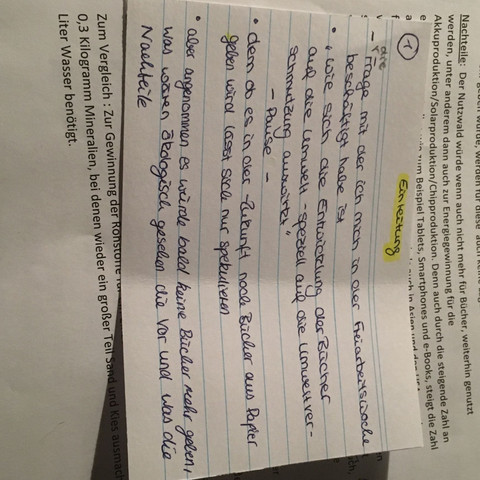 Nachteile: Der Nutzwald würde wenn auch nicht mehr für Bücher, weiterhin genutzt
werden, unter anderem dann auch zur Energiegewinnung für die
Akkuproduktion/Solarproduktion/Chipproduktion. Denn auch durch die steigende Zahl an
zum Beispiel Tablets, Smartphones und e-Books, steigt die Zahl
1
Einleitung
- die Frage mit der ich mich in der Freiarbeitswoche
beschäftigt habe ist
"wie sich die Entwicklung der Bücher
auf die Umwelt - speziell auf die Umweltver-
schmutzung auswirkt"
- Pause -
• denn ob es in der Zukunft noch Bücher aus Papier
geben wird lässt sich nur spekulieren
• aber angenommen es würde bald keine Bücher mehr geben,
was wären ökologisch gesehen die Vor und was die
Nachteile
Zum Vergleich : Zur Gewinnung der Rohstoffe
0,3 Kilogramm Mineralien, bei denen wieder ein großer Teil Sand und Kies ausmach
Liter Wasser benötigt.